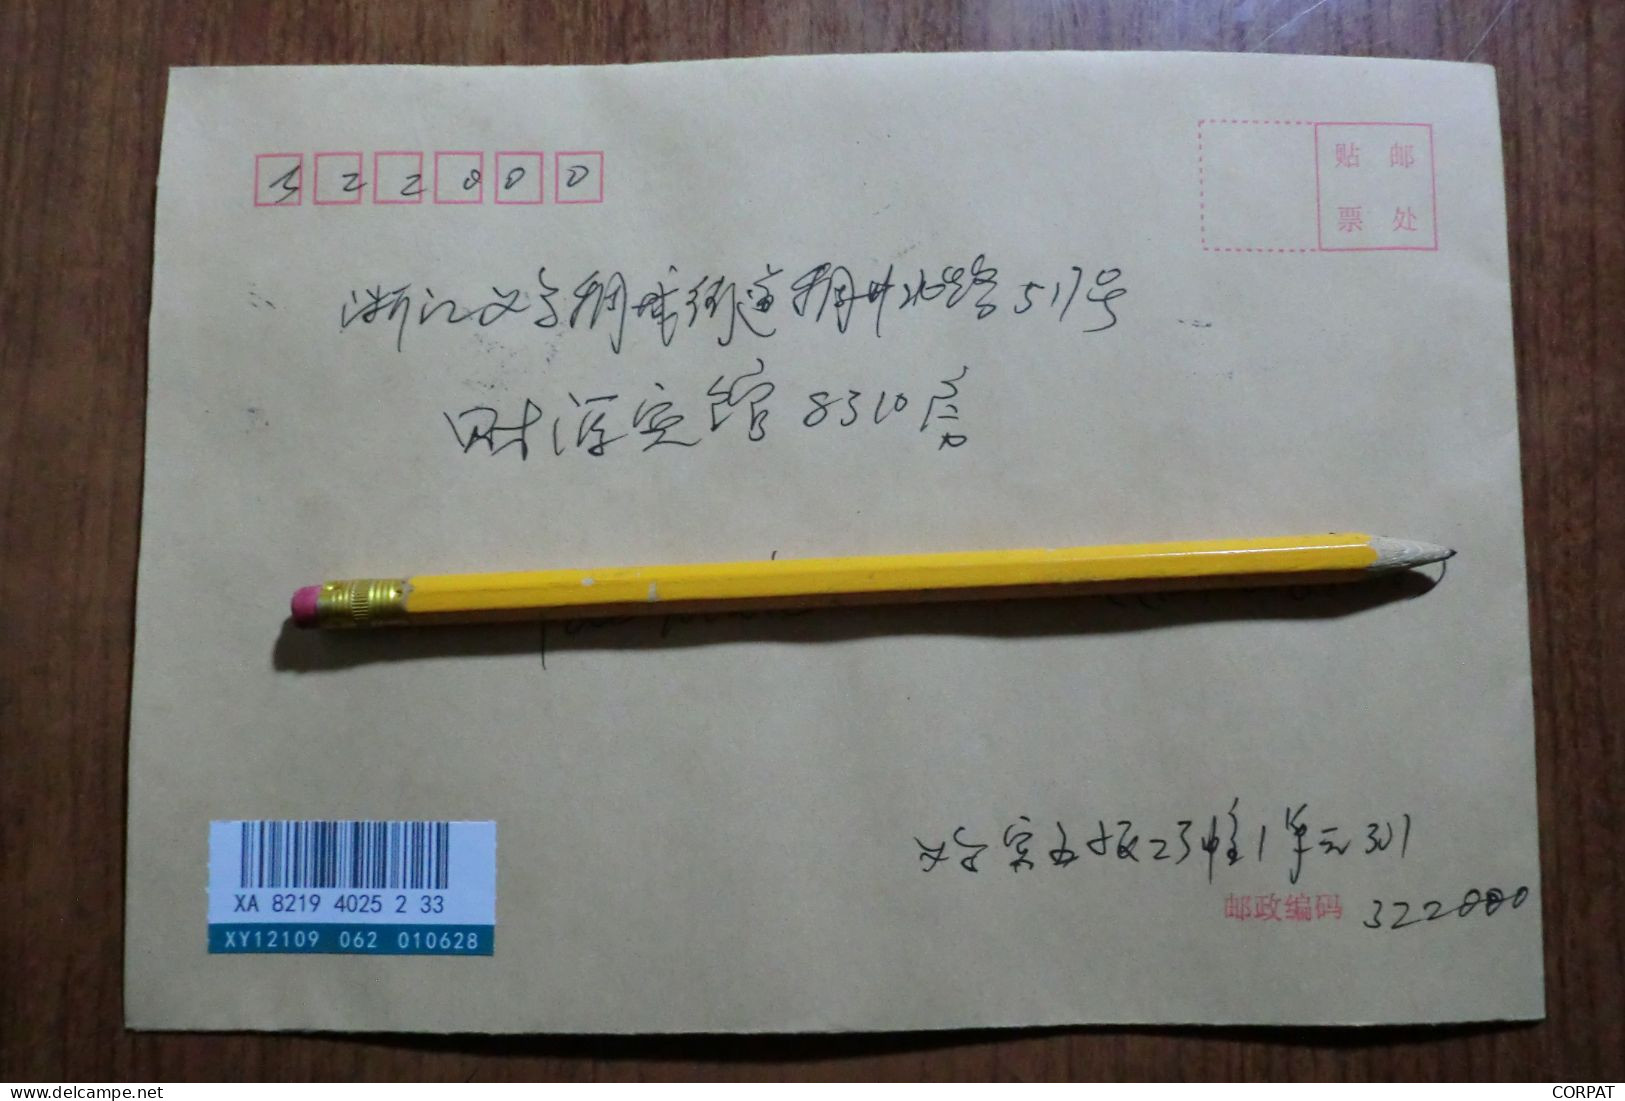 322000
贴 邮
票 处
浙江义乌稠城街道稠州北路517号
财源宾馆8310房
义乌宾王北报23幢1单元301
邮政编码 322000
XA 8219 4025 2 33
XY12109 062 010628
CORPAT